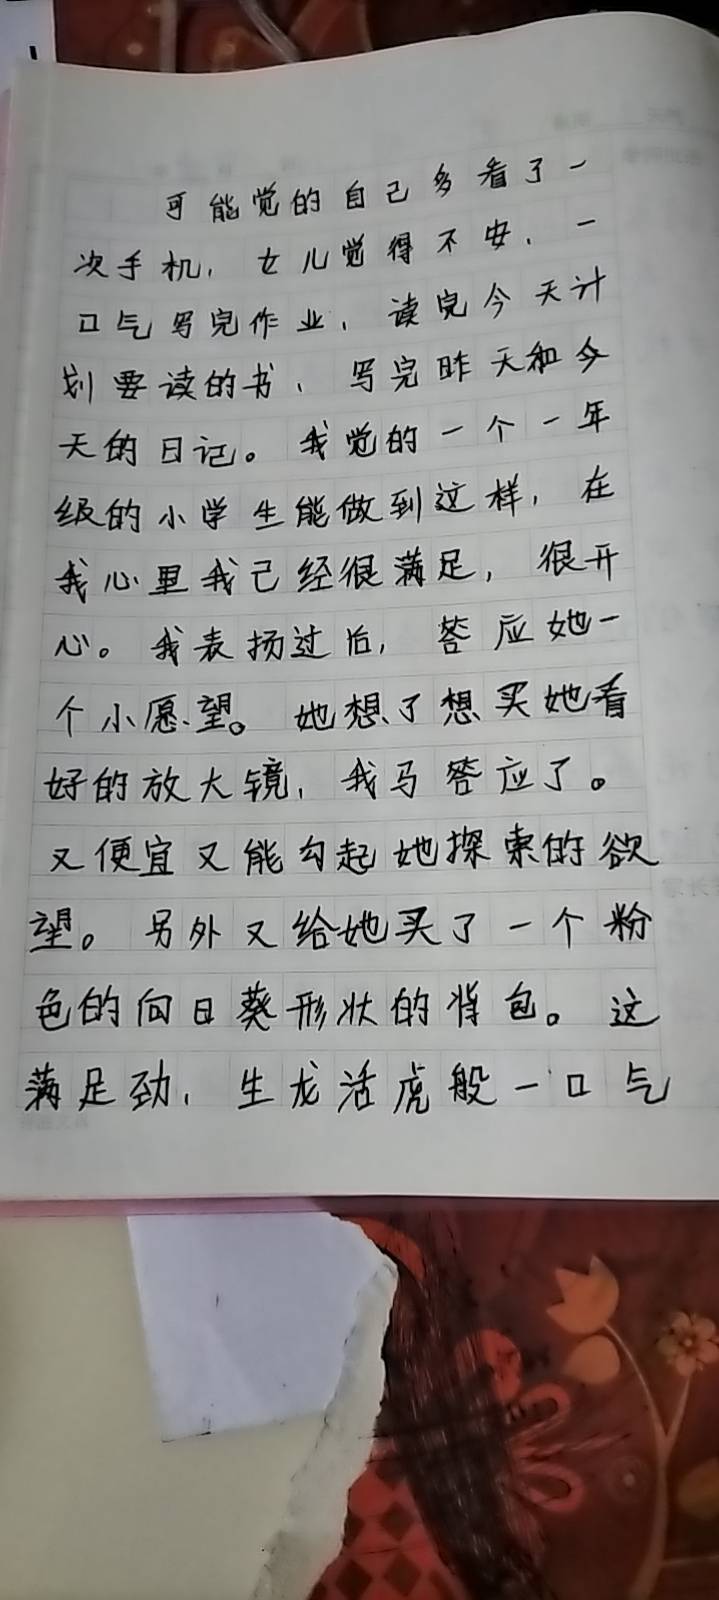 可能觉的自己多看了一
次手机，女儿觉得不安，一
口气写完作业，读完今天计
划要读的书，写完昨天和今
天的日记。我觉的一个一年
级的小学生能做到这样，在
我心里我已经很满足，很开
心。我表扬过后，答应她一
个小愿望。她想了想买她看
好的放大镜，我马答应了。
又便宜又能勾起她探索的欲
望。另外又给她买了一个粉
色的向日葵形状的背包。这
满足劲，生龙活虎般一口气